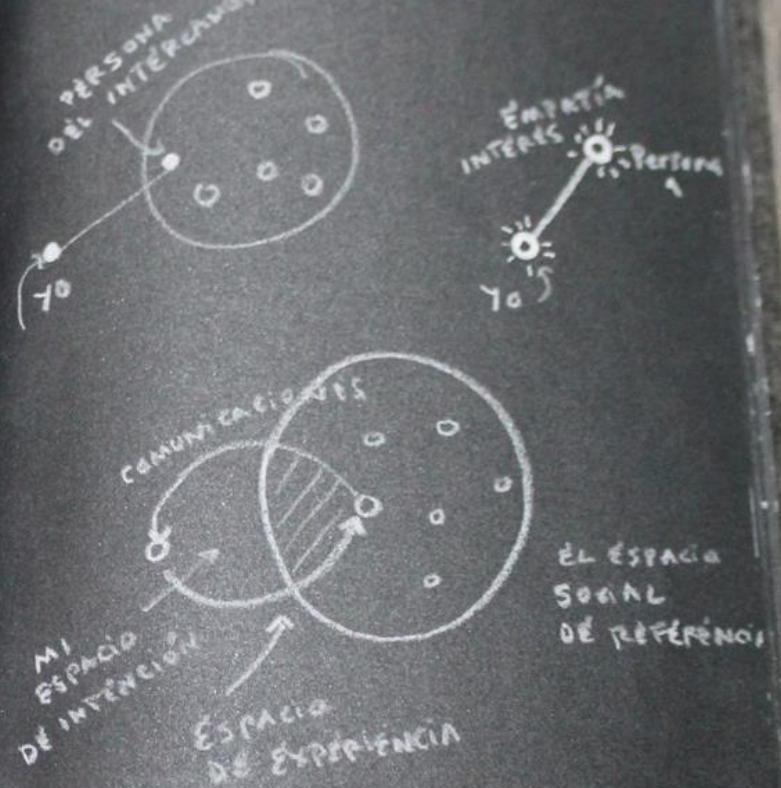 PERSONA
DEL
YO
EMPATÍA
INTERÉS
Persona
A
Yo
COMUNICACIONES
MI
ESPACIO
DE INTENCIÓN
ESPACIO
DE EXPERIENCIA
EL ESPACIO
SOCIAL
DE